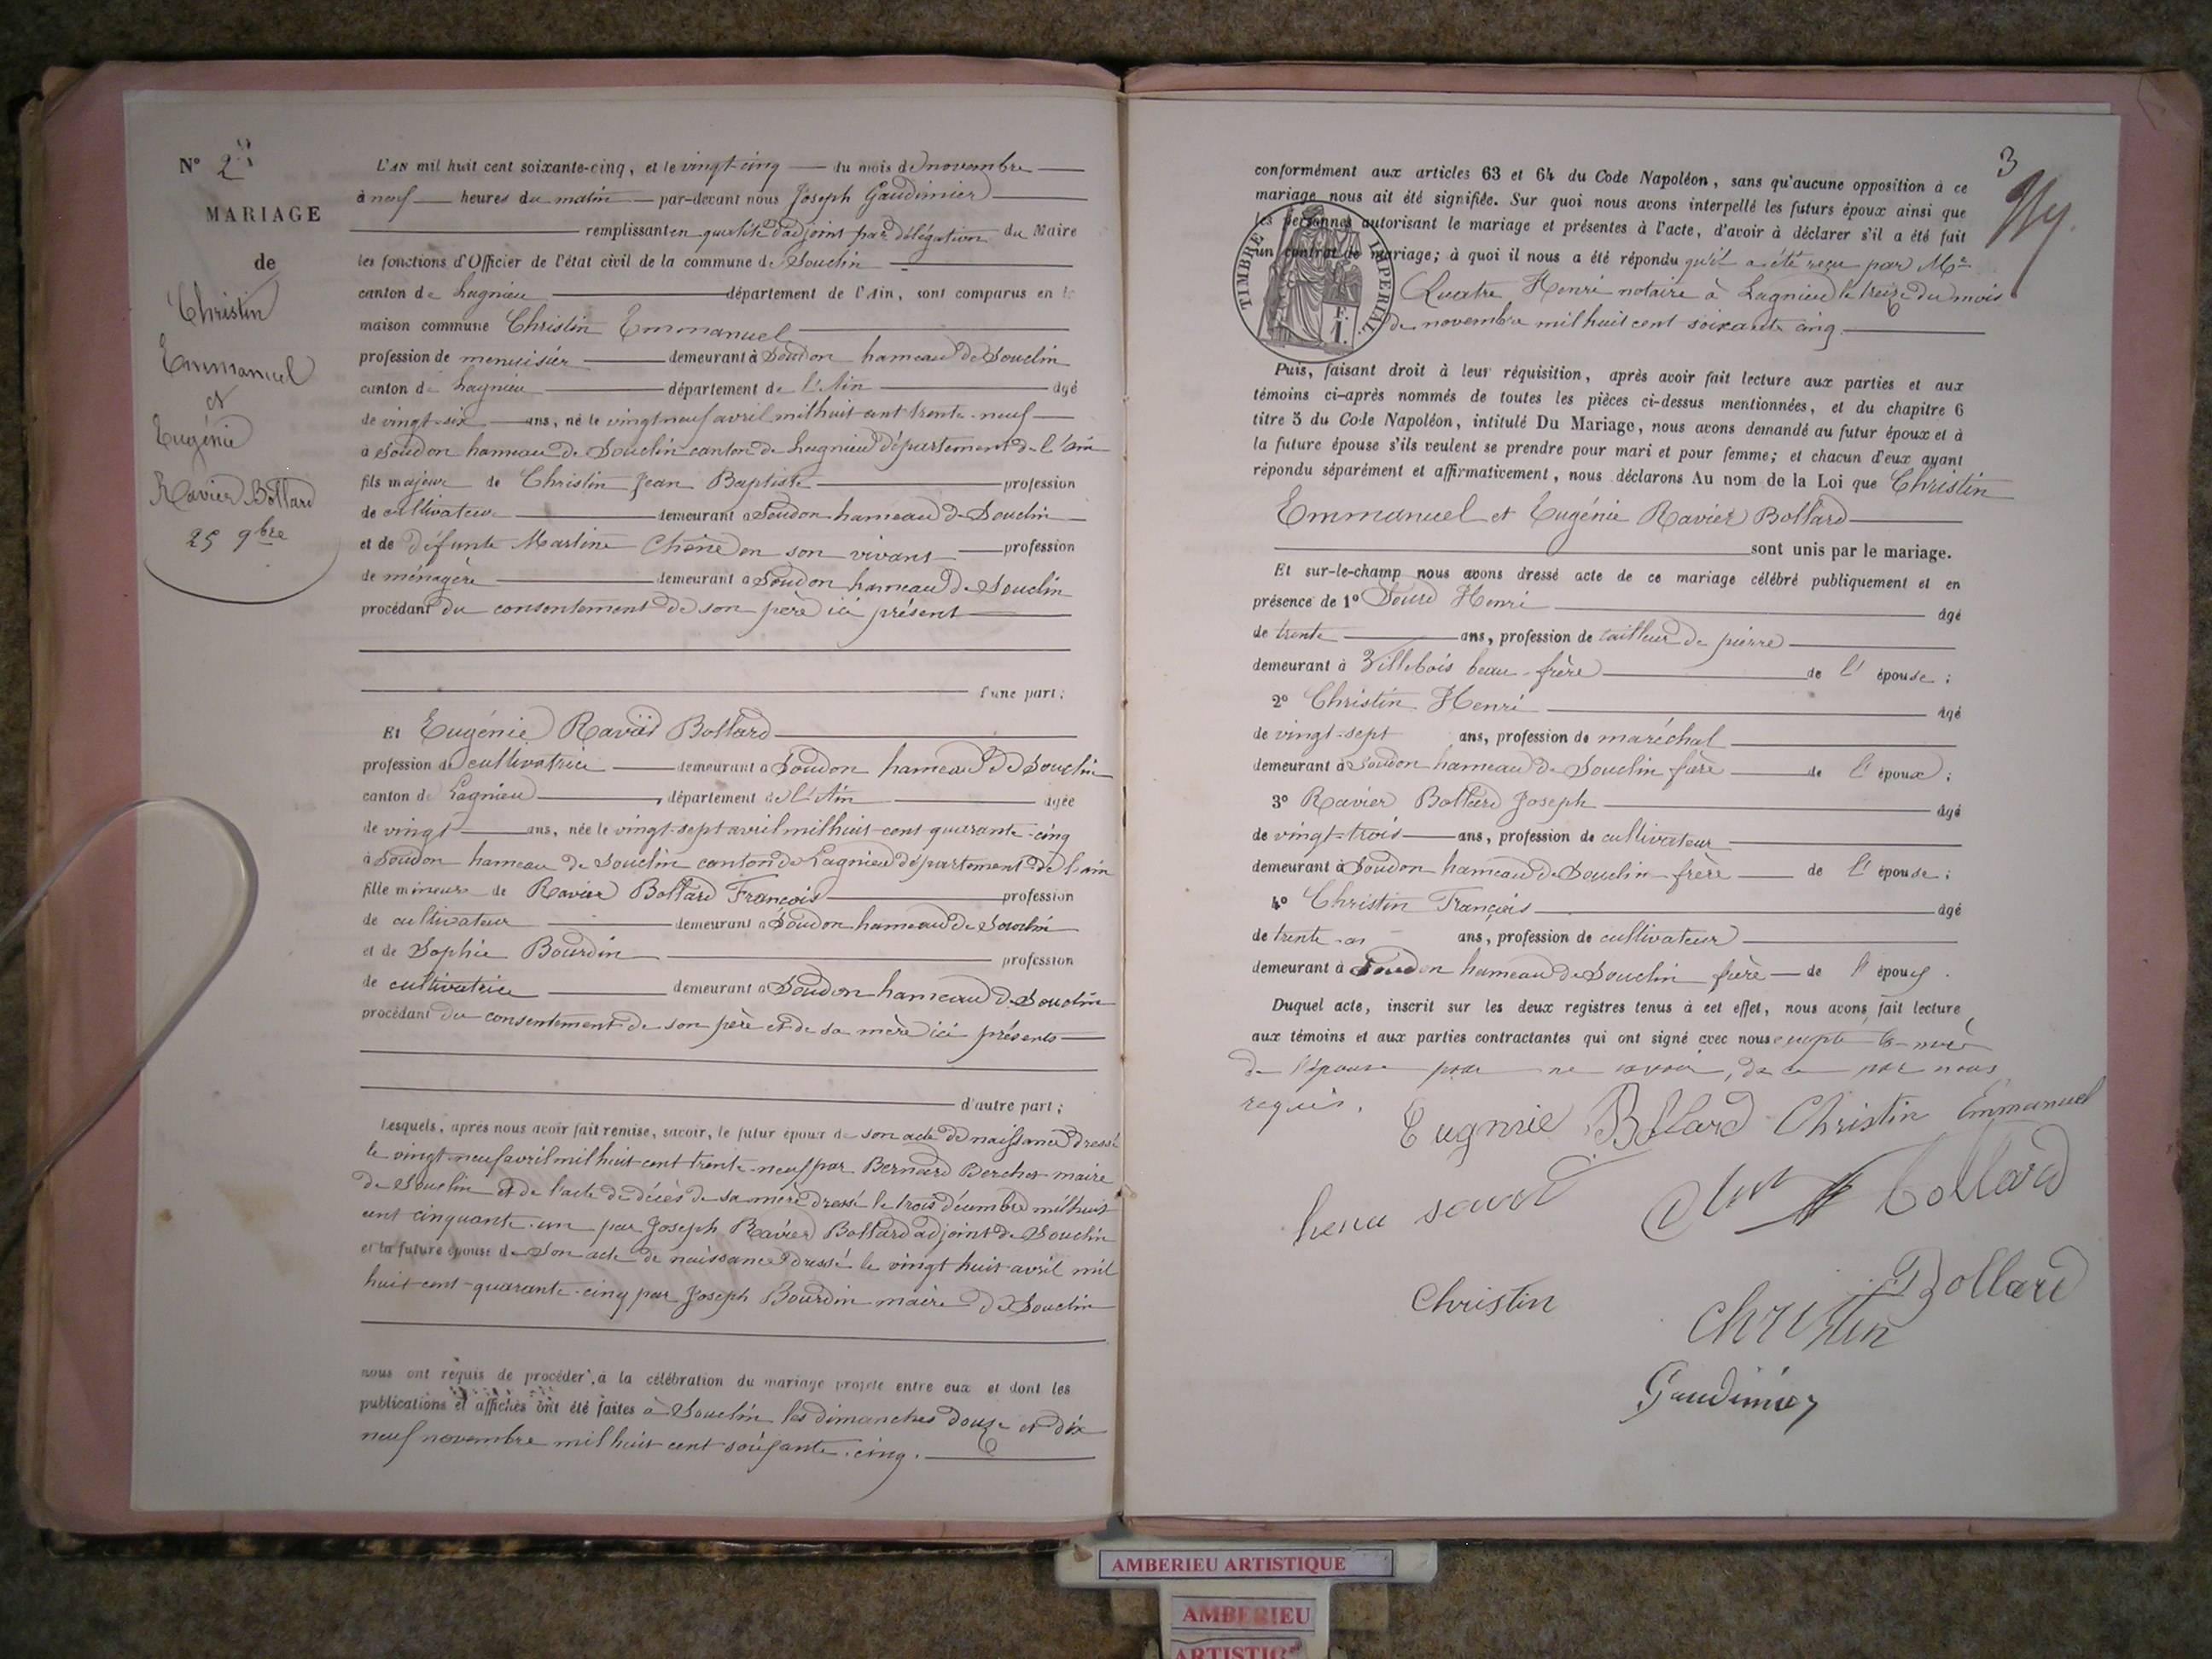 N° 2
MARIAGE
de
Christin
Emmanuel
et
Eugénie
Ravier Bollard
25 9bre
L'AN mil huit cent soixante-cinq, et le vingt-cinq du mois de novembre
à neuf heures du matin par-devant nous Joseph Gaudinier
remplissant en qualité d'adjoint par délégation du Maire
les fonctions d'Officier de l'état civil de la commune de Souclin
canton de Lagnieu département de l'Ain, sont comparus en la
maison commune Christin Emmanuel
profession de menuisier demeurant à Soudon hameau de Souclin
canton de Lagnieu département de l'Ain âgé
de vingt-six ans, né le vingt neuf avril mil huit cent trente-neuf
à Soudon hameau de Souclin canton de Lagnieu département de l'ain
fils majeur de Christin Jean Baptiste profession
de cultivateur demeurant à Soudon hameau de Souclin
et de défunte Martine Chêne en son vivant profession
de ménagère demeurant à Soudon hameau de Souclin
procédant du consentement de son père ici présent
d'une part;
Et Eugénie Ravier Bollard
profession de cultivatrice demeurant à Soudon hameau de Souclin
canton de Lagnieu, département de l'Ain âgée
de vingt ans, née le vingt-sept avril mil huit cent quarante-cinq
à Soudon hameau de Souclin canton de Lagnieu département de l'ain
fille mineure de Ravier Bollard François profession
de cultivateur demeurant à Soudon hameau de Souclin
et de Sophie Bourdin profession
de cultivatrice demeurant à Soudon hameau de Souclin
procédant du consentement de son père et de sa mère ici présents
d'autre part;
Lesquels, après nous avoir fait remise, savoir, le futur époux de son acte de naissance dressé
le vingt-neuf avril mil huit cent trente-neuf par Bernard Berchet maire
de Souclin et de l'acte de décès de sa mère dressé le trois décembre mil huit
cent cinquante-un par Joseph Ravier Bollard adjoint de Souclin
et la future épouse de son acte de naissance dressé le vingt huit avril mil
huit cent-quarante-cinq par Joseph Bourdin maire de Souclin
nous ont requis de procéder à la célébration du mariage projeté entre eux et dont les
publications et affiches ont été faites à Souclin les dimanches douze et dix
neuf novembre mil huit cent soixante-cinq.
3
conformément aux articles 63 et 64 du Code Napoléon, sans qu'aucune opposition à ce
mariage nous ait été signifiée. Sur quoi nous avons interpellé les futurs époux ainsi que
les personnes autorisant le mariage et présentes à l'acte, d'avoir à déclarer s'il a été fait
un contrat de mariage; à quoi il nous a été répondu qu'il a été reçu par Me
Quatre Henri notaire à Lagnieu le treize du mois
de novembre mil huit cent soixante cinq
TIMBRE IMPERIAL
Puis, faisant droit à leur réquisition, après avoir fait lecture aux parties et aux
témoins ci-après nommés de toutes les pièces ci-dessus mentionnées, et du chapitre 6
titre 5 du Code Napoléon, intitulé Du Mariage, nous avons demandé au futur époux et à
la future épouse s'ils veulent se prendre pour mari et pour femme; et chacun d'eux ayant
répondu séparément et affirmativement, nous déclarons Au nom de la Loi que Christin
Emmanuel et Eugénie Ravier Bollard
sont unis par le mariage.
Et sur-le-champ nous avons dressé acte de ce mariage célébré publiquement et en
présence de 1° Henri âgé
de trente ans, profession de tailleur de pierre
demeurant à Villebois beau-frère de l'épouse;
2° Christin Henri âgé
de vingt-sept ans, profession de maréchal
demeurant à Soudon hameau de Souclin frère de l'époux;
3° Ravier Bollard Joseph âgé
de vingt-trois ans, profession de cultivateur
demeurant à Soudon hameau de Souclin frère de l'épouse;
4° Christin François âgé
de trente ans, profession de cultivateur
demeurant à Soudon hameau de Souclin frère de l'époux.
Duquel acte, inscrit sur les deux registres tenus à cet effet, nous avons fait lecture
aux témoins et aux parties contractantes qui ont signé avec nous excepté la mère
de l'épouse pour ne savoir, de ce par nous
requis.
Eugnie Bollard Christin Emmanuel
Bollard
Christin
Bollard
Christin
Gaudinier
AMBERIEU ARTISTIQUE
AMBERIEU
ARTISTIQUE